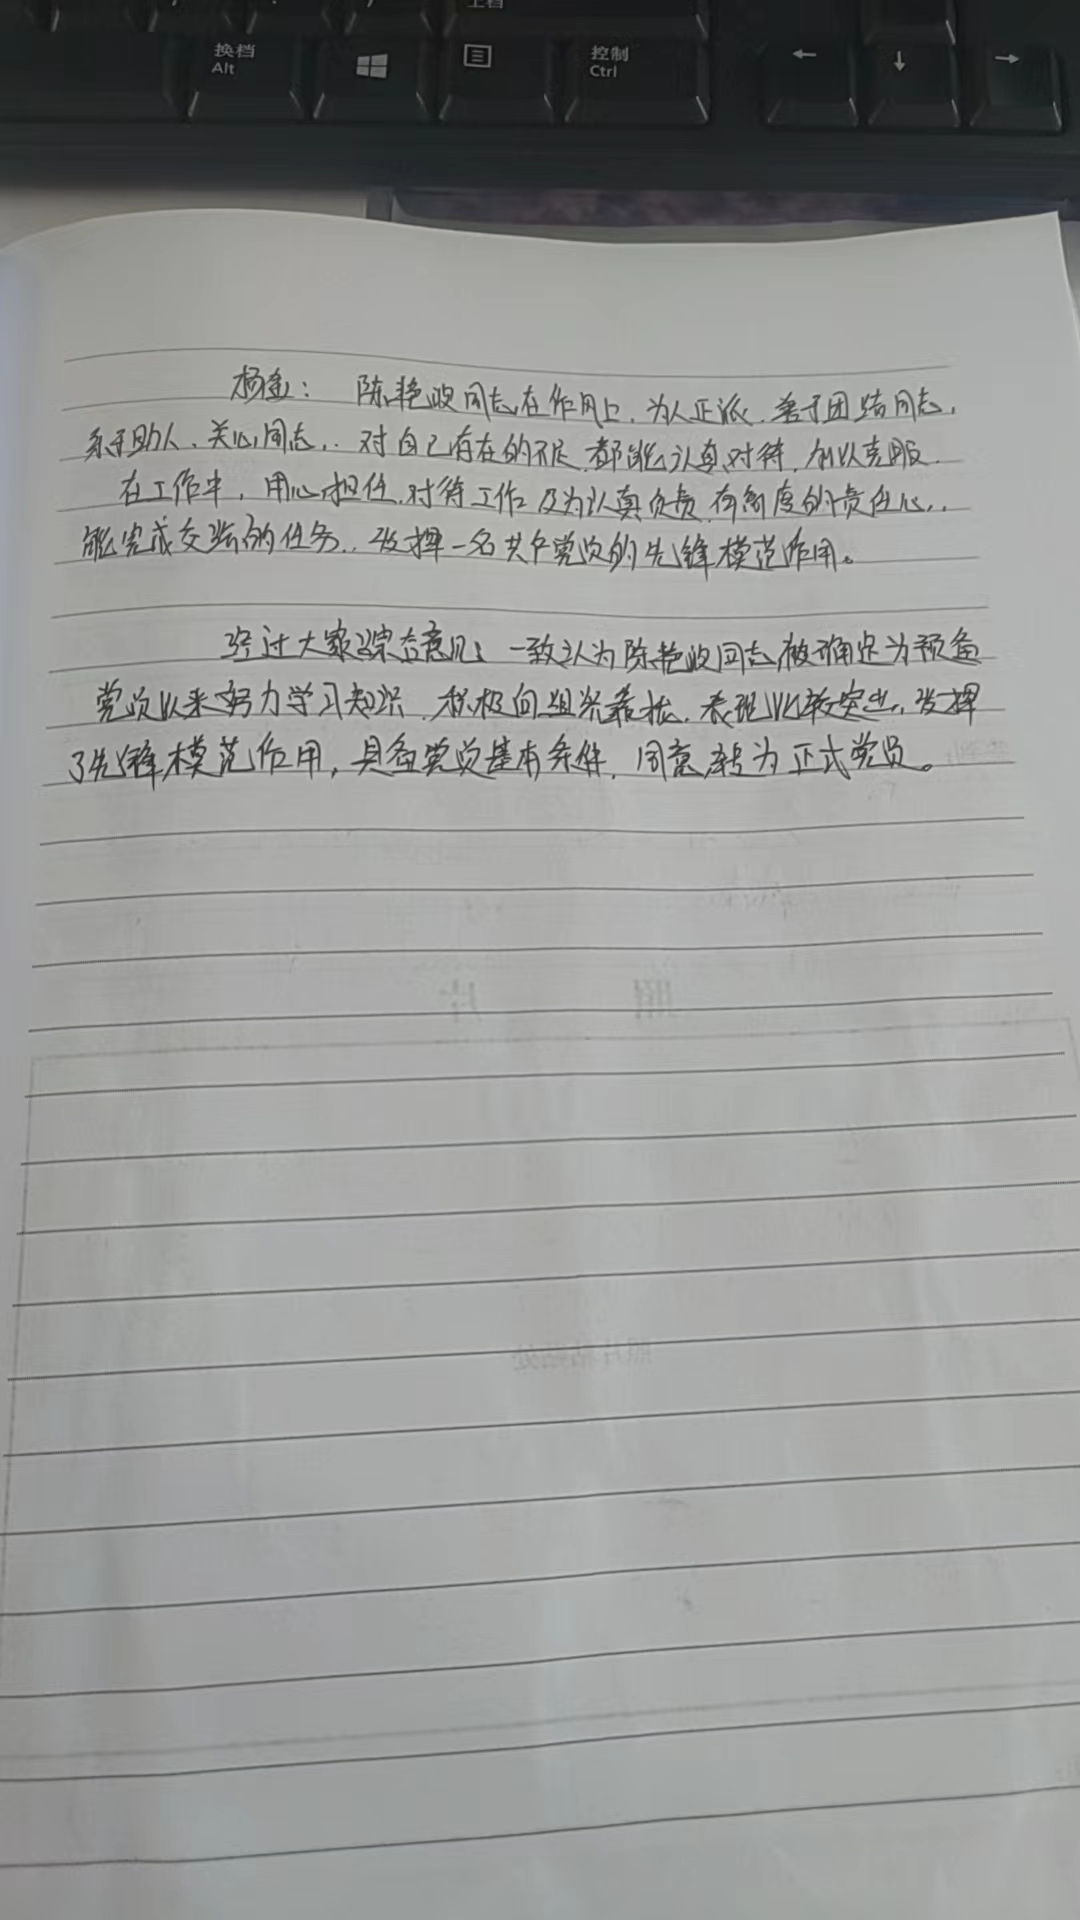 换档
Alt
控制
Ctrl
杨金： 陈艳波同志在作风上，为人正派，善于团结同志，
乐于助人、关心同志，对自己存在的不足，都能认真对待，加以克服。
在工作中，用心担任，对待工作极为认真负责，有高度的责任心，
能完成交给的任务，发挥一名共产党员的先锋模范作用。
经过大家综合意见：一致认为陈艳波同志被确定为预备
党员以来努力学习知识，积极向组织靠拢，表现比较突出，发挥
了先锋模范作用，具备党员基本条件，同意转为正式党员。
照 片
照片粘贴处